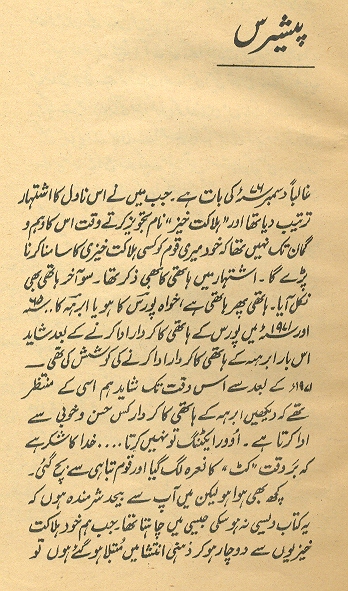 پیشرس
غالباً دسمبر ۷۶ء کی بات ہے۔ جب میں نے اس ناول کا اشتہار
ترتیب دیا تھا اور "ہلاکت خیز" نام تجویز کرتے وقت اس کا وہم و
گمان تک نہیں تھا کہ خود میری قوم کو کسی ہلاکت خیزی کا سامنا کرنا
پڑے گا۔ اشتہار میں ہاتھی کا بھی ذکر تھا۔ سو آخر ہاتھی بھی
نکل آیا۔ ہاتھی پھر ہاتھی ہے، خواہ پورس کا ہو یا ابرہہ کا۔ ۶۵ء
اور ۱۹۷۱ء میں پورس کے ہاتھی کا کردار ادا کرنے کے بعد شاید
اس بار ابرہہ کے ہاتھی کا کردار ادا کرنے کی کوشش کی تھی ــ
۱۹۷۱ء کے بعد سے اس وقت تک شاید ہم اسی کے منتظر
تھے کہ دیکھیں ابرہہ کے ہاتھی کا کردار کس حسن و خوبی سے
ادا کرتا ہے۔ اوور ایکٹنگ تو نہیں کرتا... خدا کا شکر ہے
کہ بروقت "کٹ" کا نعرہ لگ گیا اور قوم تباہی سے بچ گئی۔
کچھ بھی ہوا ہو لیکن میں آپ سے بیحد شرمندہ ہوں کہ
یہ کتاب ویسی نہ ہو سکی جیسی میں چاہتا تھا۔ جب ہم خود ہلاکت
خیزیوں سے دوچار ہو کر ذہنی انتشار میں مبتلا ہو گئے ہوں تو